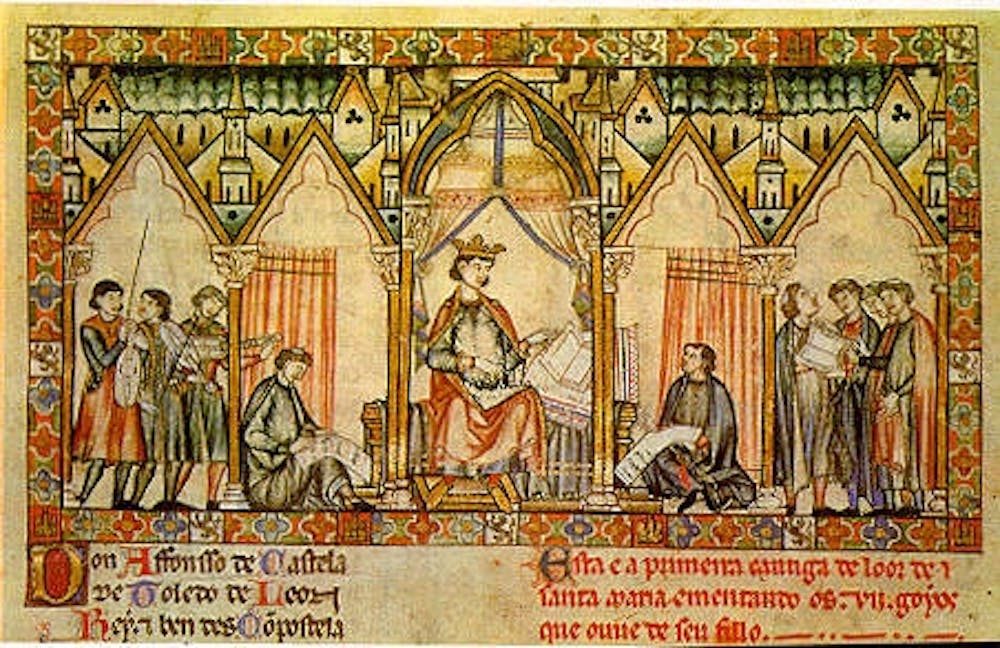 Don Affonsso de Castela
de Toledo de Leon
Rey. ⁊ ben des Cõpostela
Esta e a primeira cantiga de loor de
santa maria ementando os .vii. goyos
que ouue de seu fillo.